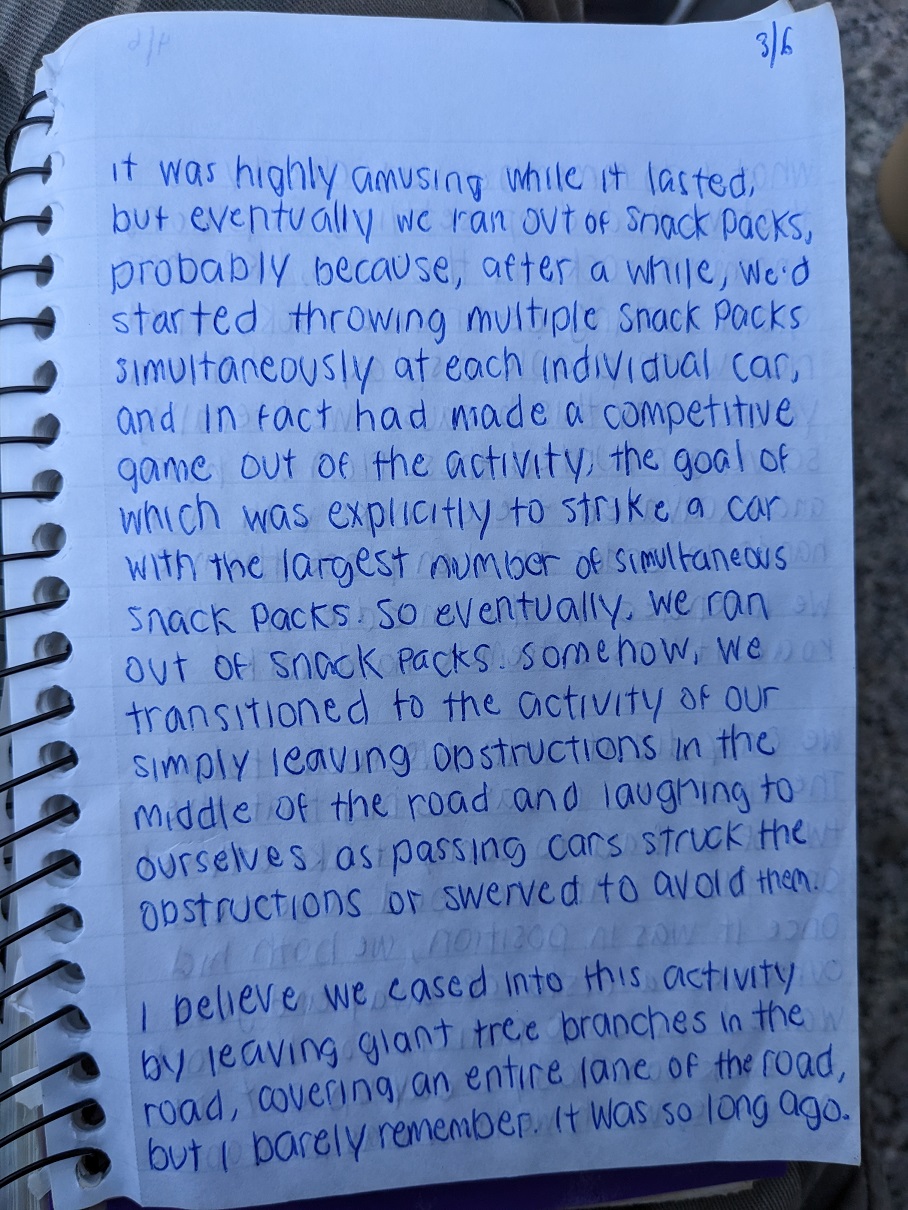 3/6
it was highly amusing while it lasted,
but eventually we ran out of snack packs,
probably because, after a while, we'd
started throwing multiple snack packs
simultaneously at each individual car,
and in fact had made a competitive
game out of the activity, the goal of
which was explicitly to strike a car
with the largest number of simultaneous
snack packs. so eventually, we ran
out of snack packs. somehow, we
transitioned to the activity of our
simply leaving obstructions in the
middle of the road and laughing to
ourselves as passing cars struck the
obstructions or swerved to avoid them.
I believe we eased into this activity
by leaving giant tree branches in the
road, covering an entire lane of the road,
but I barely remember. It was so long ago.